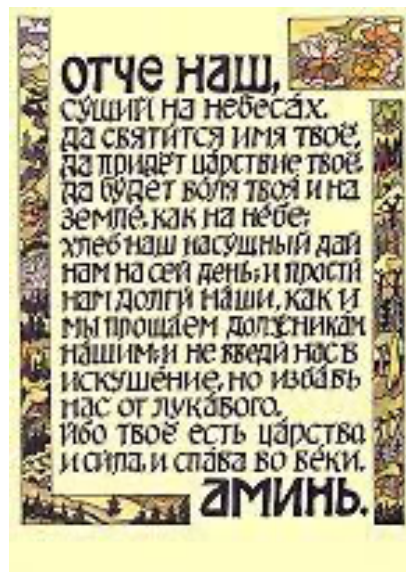 ОТЧЕ НАШ,
СУ́ЩИЙ НА НЕБЕСА́Х.
ДА СВЯТИ́ТСЯ ИМЯ ТВОЁ,
ДА ПРИДЁТ ЦА́РСТВИЕ ТВОЁ,
ДА БУ́ДЕТ ВО́ЛЯ ТВОЯ́ И НА
ЗЕМЛЕ́, КАК НА НЕ́БЕ;
ХЛЕБ НАШ НАСУ́ЩНЫЙ ДАЙ
НАМ НА СЕЙ ДЕНЬ; И ПРОСТИ́
НАМ ДОЛГИ́ НА́ШИ, КАК И
МЫ ПРОЩА́ЕМ ДОЛЖНИКА́М
НА́ШИМ; И НЕ ВВЕДИ́ НАС В
ИСКУШЕ́НИЕ, НО ИЗБА́ВЬ
НАС ОТ ЛУКА́ВОГО.
И́БО ТВОЁ ЕСТЬ ЦА́РСТВО
И СИ́ЛА, И СЛА́ВА ВО ВЕ́КИ.
АМИНЬ.